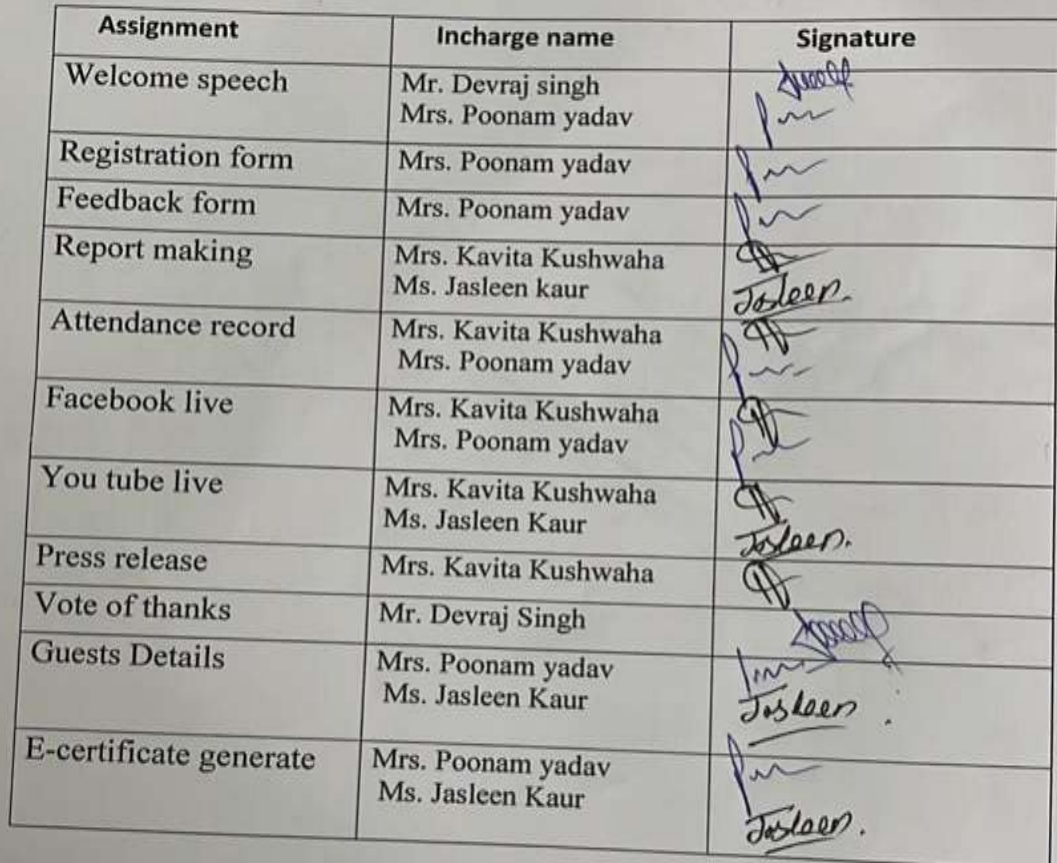 Assignment Incharge name Signature
Welcome speech Mr. Devraj singh
Mrs. Poonam yadav
Registration form Mrs. Poonam yadav
Feedback form Mrs. Poonam yadav
Report making Mrs. Kavita Kushwaha
Ms. Jasleen kaur Jasleen.
Attendance record Mrs. Kavita Kushwaha
Mrs. Poonam yadav
Facebook live Mrs. Kavita Kushwaha
Mrs. Poonam yadav
You tube live Mrs. Kavita Kushwaha
Ms. Jasleen Kaur Jasleen.
Press release Mrs. Kavita Kushwaha
Vote of thanks Mr. Devraj Singh
Guests Details Mrs. Poonam yadav
Ms. Jasleen Kaur Jasleen.
E-certificate generate Mrs. Poonam yadav
Ms. Jasleen Kaur Jasleen.